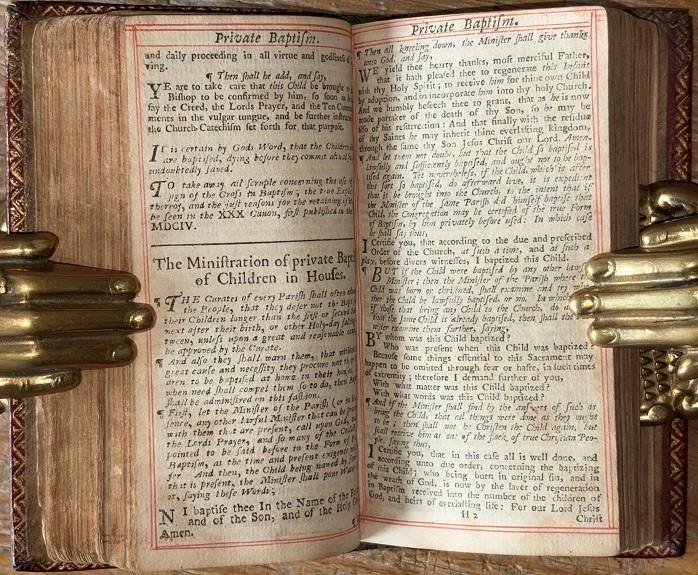 Private Baptiſm.
and daily proceeding in all virtue and godlineſs
ving.
¶ Then ſhall he add, and ſay,
YE are to take care that this Child be brought
Biſhop to be confirmed by him, ſo ſoon as
ſay the Creed, the Lords Prayer, and the Ten
ments in the vulgar tongue, and be further
the Church-Catechiſm ſet forth for that purpoſe.
IT is certain by Gods Word, that the Children
are baptiſed, dying before they commit
undoubtedly ſaved.
TO take away all ſcruple concerning the uſe
ſign of the Croſs in Baptiſm; the true
thereof, and the juſt reaſons for the retaining
be ſeen in the XXX Canon, firſt publiſhed in the
MDCIV.
The Miniſtration of private
of Children in Houſes.
¶ THE Curates of every Pariſh ſhall often
the People, that they defer not the
their Children longer than the firſt or ſecond
next after their birth, or other Holy-day
tween, unleſs upon a great and reaſonable
be approved by the Curate.
¶ And alſo they ſhall warn them, that
great cauſe and neceſſity they procure not
dren to be baptiſed at home in their
when need ſhall compel them ſo to do, then
ſhall be adminiſtred on this faſhion.
¶ Firſt, let the Miniſter of the Pariſh
ſence, any other lawful Miniſter that can be
with them that are preſent, call upon God,
the Lords Prayer, and ſo many of the
pointed to be ſaid before in the Form of
Baptiſm, as the time and preſent exigence
fer. And then, the Child being named by
that is preſent, the Miniſter ſhall pour
it, ſaying theſe Words;
N I baptiſe thee In the Name of the
and of the Son, and of the Holy
Amen.
Private Baptiſm.
¶ Then all kneeling down, the Miniſter ſhall give thanks
unto God, and ſay,
WE yield thee hearty thanks, moſt merciful Father,
that it hath pleaſed thee to regenerate this Infant
with thy Holy Spirit; to receive him for thine own Child
by adoption, and to incorporate him into thy holy Church.
And we humbly beſeech thee to grant, that as he is now
made partaker of the death of thy Son, ſo he may be
alſo of his reſurrection: And that finally with the reſidue
of thy Saints he may inherit thine everlaſting kingdom,
through the ſame thy Son Jeſus Chriſt our Lord. Amen.
¶ And let them not doubt, but that the Child ſo baptiſed is
lawfully and ſufficiently baptiſed, and ought not to be bap-
tiſed again. Yet nevertheleſs, if the Child, which is after
this ſort ſo baptiſed, do afterward live, it is expedient
that it be brought into the Church, to the intent that if
the Miniſter of the ſame Pariſh did himſelf baptiſe that
Child, the Congregation may be certified of the true Form
of Baptiſm, by him privately before uſed: In which caſe
he ſhall ſay thus,
I Certifie you, that according to the due and preſcribed
Order of the Church, at ſuch a time, and at ſuch a
place, before divers witneſſes, I baptiſed this Child.
¶ BUT if the Child were baptiſed by any other
Miniſter; then the Miniſter of the Pariſh where
Child was born or chriſtned, ſhall examine and try
ther the Child be lawfully baptiſed, or no. In which
if thoſe that bring any Child to the Church, do
that the ſame Child is already baptiſed, then ſhall the
niſter examine them further, ſaying,
BY whom was this Child baptiſed?
Who was preſent when this Child was baptiſed?
Becauſe ſome things eſſential to this Sacrament may
happen to be omitted through fear or haſte, in ſuch times
of extremity; therefore I demand further of you,
With what matter was this Child baptiſed?
With what words was this Child baptiſed?
¶ And if the Miniſter ſhall find by the anſwers of ſuch as
bring the Child, that all things were done as they ought
to be; then ſhall not he chriſten the Child again, but
ſhall receive him as one of the flock of true Chriſtian Peo-
ple, ſaying thus,
I Certifie you, that in this caſe all is well done, and
according unto due order, concerning the baptizing
of this Child; who being born in original ſin, and in
the wrath of God, is now by the laver of regeneration
in Baptiſm received into the number of the children of
God, and heirs of everlaſting life: For our Lord Jeſus
H 2
Chriſt